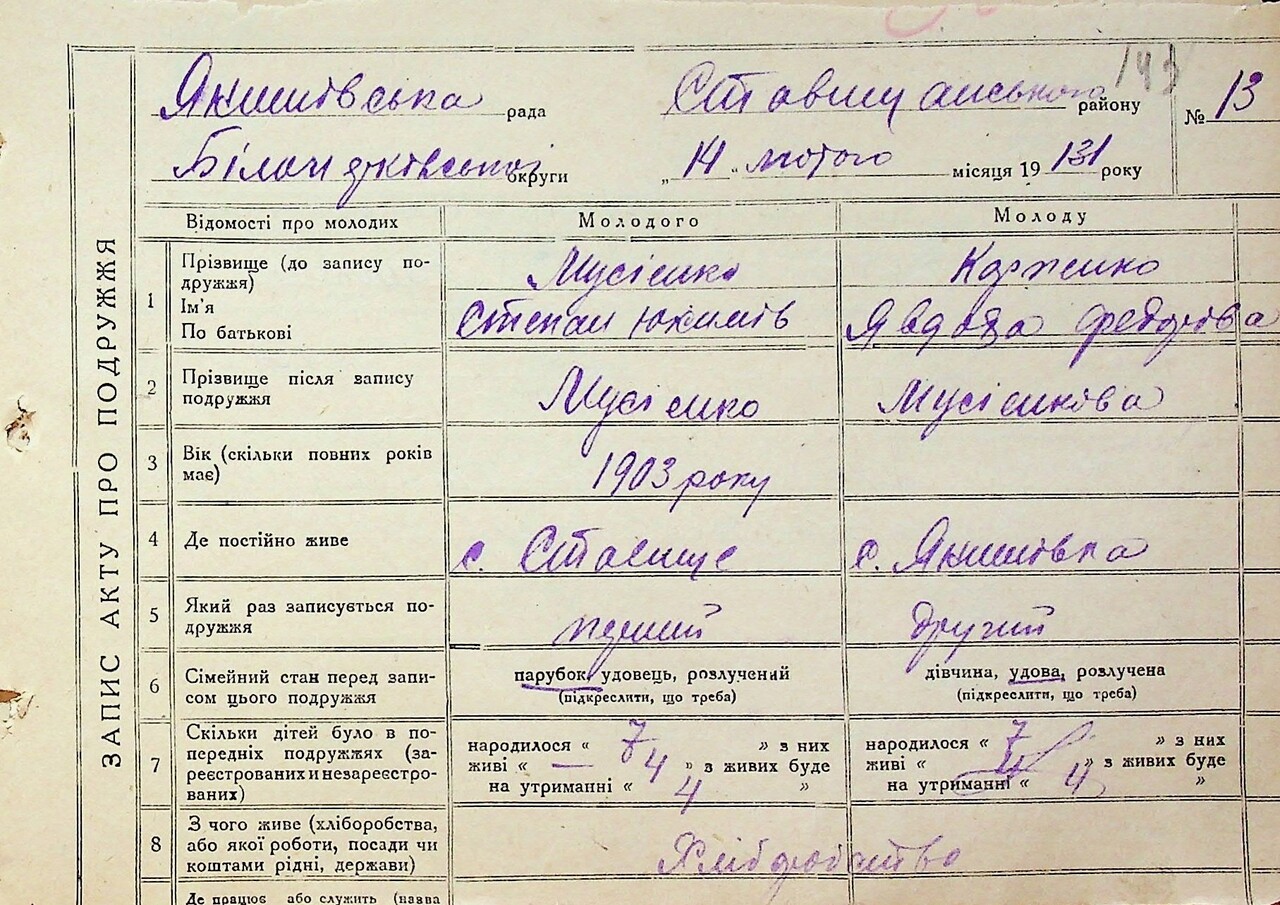 143
Якимівська рада Ставищанського району № 13
Білоцерківської округи „ 14 „ лютого місяця 19 131 року
ЗАПИС АКТУ ПРО ПОДРУЖЖЯ
Відомості про молодих Молодого Молоду
1 Прізвище (до запису по-
дружжя) Мусієнко Корженко
Ім'я
По батькові Степан Юхимів Явдоха Федорова
2 Прізвище після запису
подружжя Мусієнко Мусієнкова
3 Вік (скільки повних років
має) 1903 року
4 Де постійно живе с. Ставище с. Якимівка
5 Який раз записується по-
дружжя перший другий
6 Сімейний стан перед запи-
сом цього подружжя
парубок, удовець, розлучений
(підкреслити, що треба)
дівчина, удова, розлучена
(підкреслити, що треба)
7 Скільки дітей було в по-
передніх подружжях (за-
реєстрованих и незареєстро-
ваних)
народилося « 7 » з них
живі « — 4 » з живих буде
на утриманні « 4 »
народилося « 7 » з них
живі « 4 » з живих буде
на утриманні « 4 »
8 З чого живе (хліборобства,
або якої роботи, посади чи
коштами рідні, держави) Хліборобство
Де працює або служить (назва